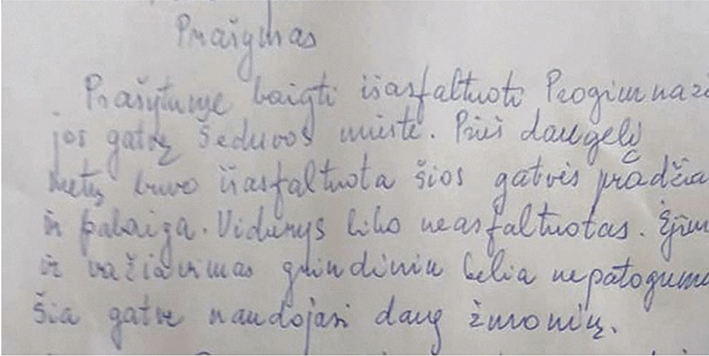 Prašymas
Prašytume baigti išasfaltuoti Progimnazi
jos gatvę Šeduvos mieste. Prieš daugelį
metų buvo išasfaltuota šios gatvės pradžia
ir pabaiga. Vidurys liko neasfaltuotas. Ėjim
ir važiavimas grindiniu kelia nepatogumu
Šia gatve naudojasi daug žmonių.